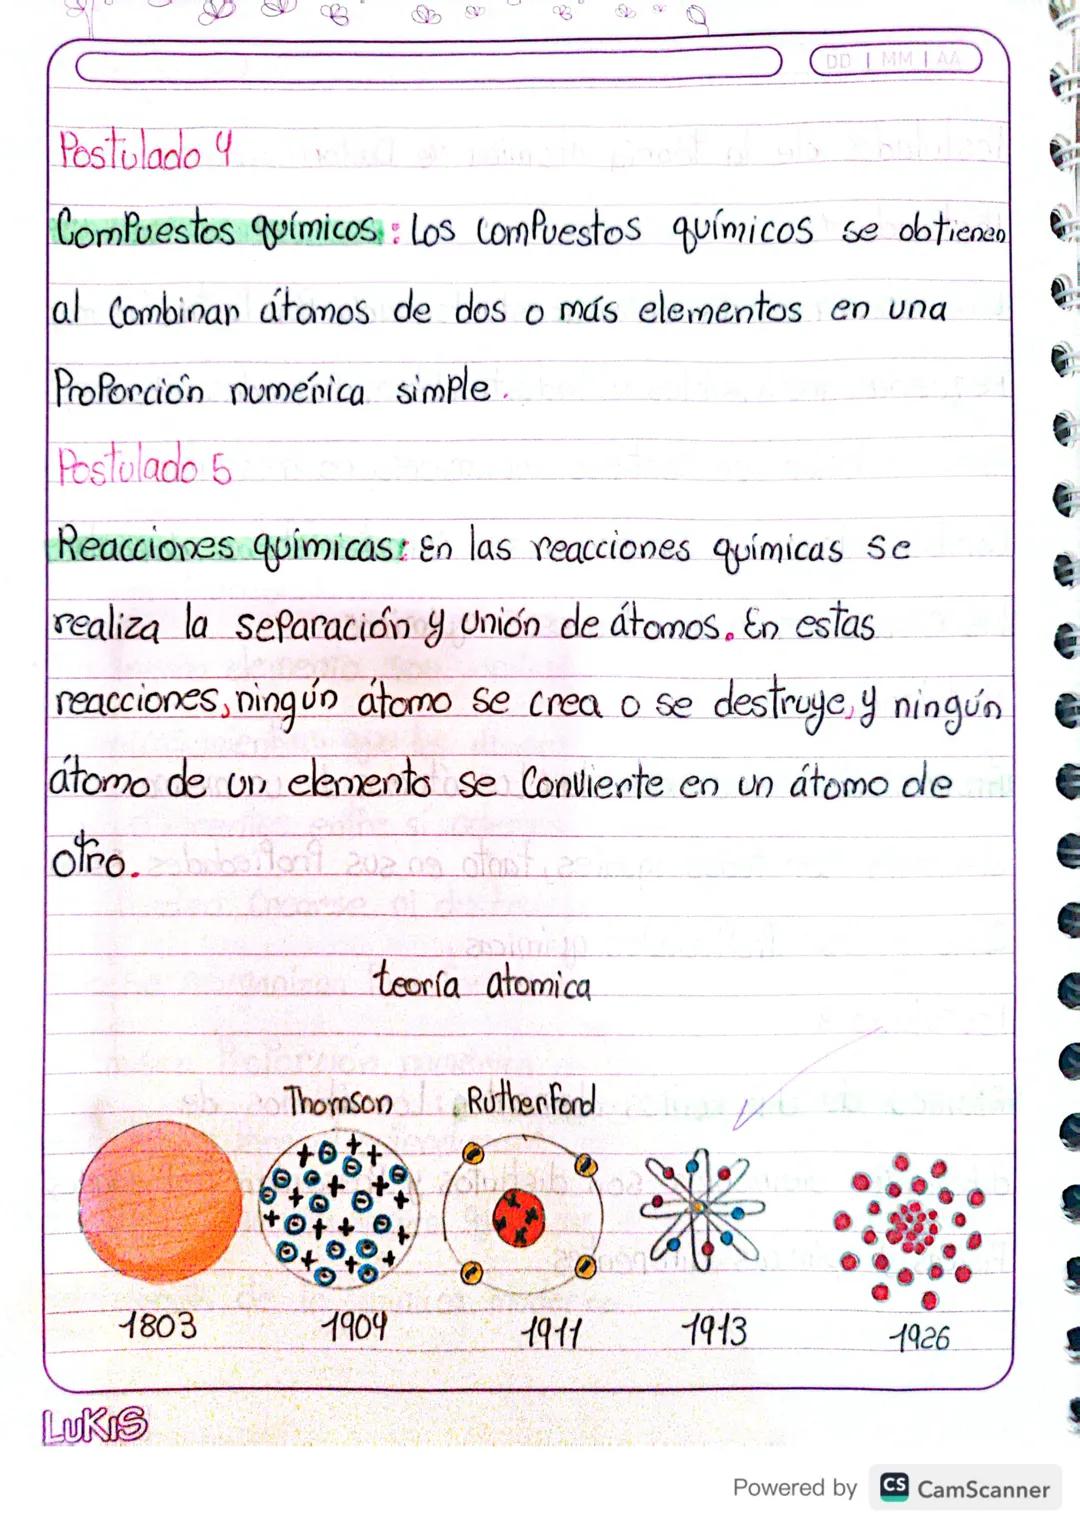 DD | MM | AA
Postulado 4
Compuestos químicos: Los compuestos químicos se obtienen
al combinar átomos de dos o más elementos en una
Proporción numérica simple.
Postulado 5
Reacciones químicas: En las reacciones químicas se
realiza la separación y unión de átomos. En estas
reacciones, ningún átomo se crea o se destruye, y ningún
átomo de un elemento se convierte en un átomo de
otro.
teoría atomica
Thomson Rutherford
1803 1904 1911 1913 1926
LUKIS
Powered by CS CamScanner